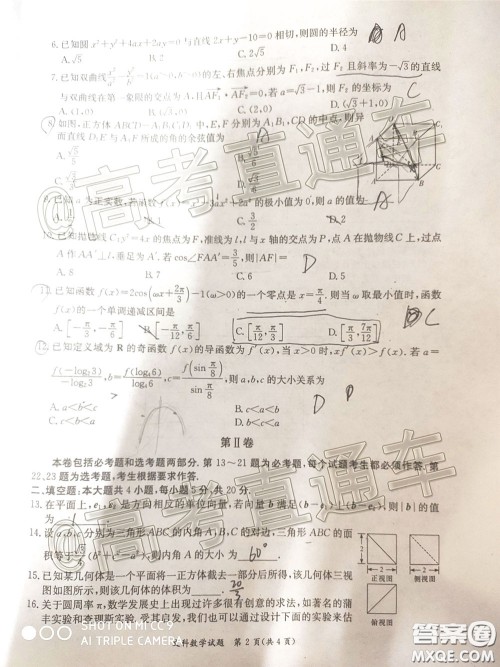 6. 已知圆 x²+y²+4ax+2ay=0 与直线 2x+y-10=0 相切,则圆的半径为
A. √5 B. 2 C. 2√5 D. 4
A
7. 已知双曲线 的左、右焦点分别为 F₁,F₂,过 F₂ 且斜率为-√3的直线
与双曲线在第一象限的交点为 A,
若 a=√3-1,则 F₂ 的坐标为
C
A. (1,0) C. (2,0)
8. 如图,正方体 ABCD-A₁B₁C₁D₁ 中,E,F 分别为 A₁B₁,CD 的中点,则异
面直线 D₁E 与 A₁F 所成的角的余弦值为
A
A. √5/5
的极小值为 0,则 a 的值为
A
A. 1/2 B. 1 C. 3/2 D. 2
10. 已知抛物线 C:y²=4x 的焦点为 F,准线为 l,l 与 x 轴的交点为 P,点 A 在抛物线 C 上,过点
A 作 AA′⊥l,垂足为 A′. 若 cos∠FAA′=3/5,则|AF|=
D
A. 10 B. 7 C. 8 D. 5
11. 已知函数 f(x)=2cos(ωx+2π/3)-1(ω>0)的一个零点是 x=π/4. 则当 ω 取最小值时,函数
f(x)的一个单调递减区间是
C
A. [-π/3,-π/6] B. [-π/12,π/6] C. [π/12,π/3] D. [π/3,7π/12]
12. 已知定义域为 R 的奇函数 f(x)的导函数为 f′(x),当 x>0 时,xf′(x)>f(x). 若 a=
f(-log₂3)/(-log₂3),b=f(log₄6)/log₄6,c=f(sin π/8)/(sin π/8),则 a,b,c 的大小关系为
D
A. a<b<c B. c<a<b
C. b<a<c D. c<b<a
第Ⅱ卷
本卷包括必考题和选考题两部分. 第 13~21 题为必考题,每个试题考生都必须作答. 第
22,23 题为选考题,考生根据要求作答.
二、填空题:本大题共 4 小题,每小题 5 分,共 20 分.
13. 在平面上,e₁,e₂ 是方向相反的单位向量,
为
14. 设 a,b,c 分别为三角形 ABC 的内角 A,B,C 的对边,三角形 ABC 的面
积等于 √3/4(b²+c²-a²),则内角 A 的大小为 60°
15. 已知某几何体是一个平面将一正方体截去一部分后所得,该几何体三视
图如图所示,则该几何体的体积为 20/3
正视图 侧视图
俯视图
16. 关于圆周率 π,数学发展史上出现过许多很有创意的求法,如著名的蒲
丰实验和查理斯实验. 受其启发,我们也可以通过设计下面的实验来估
文科数学试题 第 2 页(共 4 页)
@高考直通车
@高考直通车
@高考直通车
SHOT ON MI 9
AI TRIPLE CAMERA
答案圈
MXQE.COM